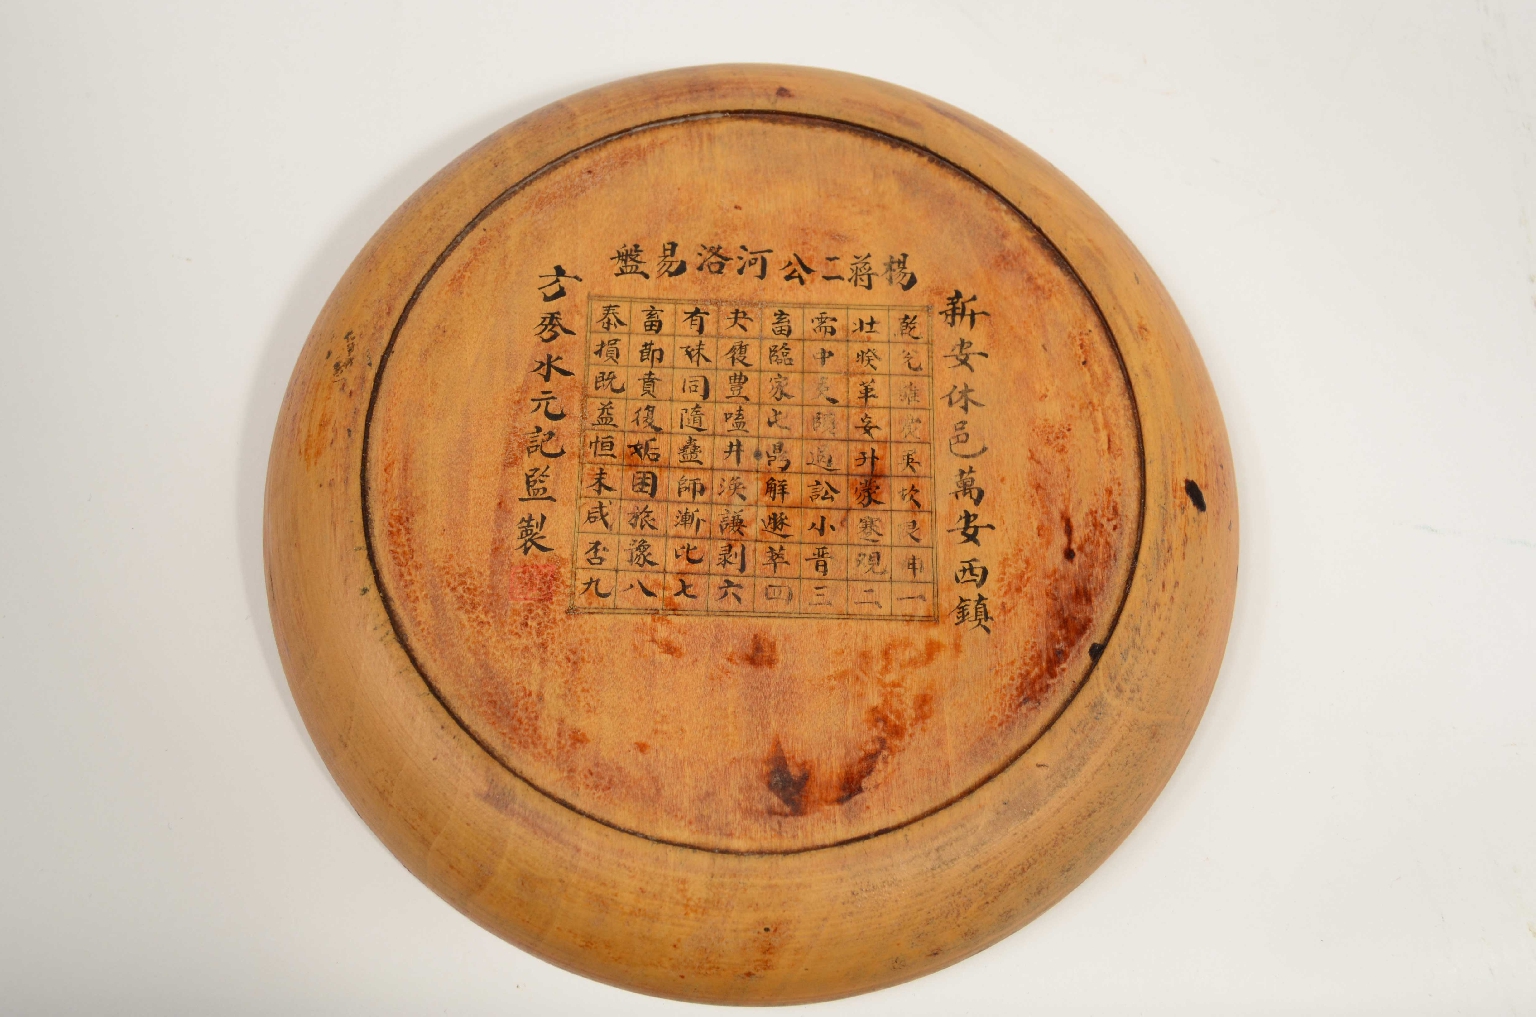 楊蔣二公河洛易盤
新安休邑萬安西鎮
乾壯需畜夬有畜泰
兌睽中臨履妹節損
離革夷家豐同賁既
妄頤嗑隨復益
巽升過井蠱姤恒
坎蒙訟解渙師困未
艮蹇小遯謙漸旅咸
觀晋萃剥比豫否
一二三四六七八九
方秀水元記監製